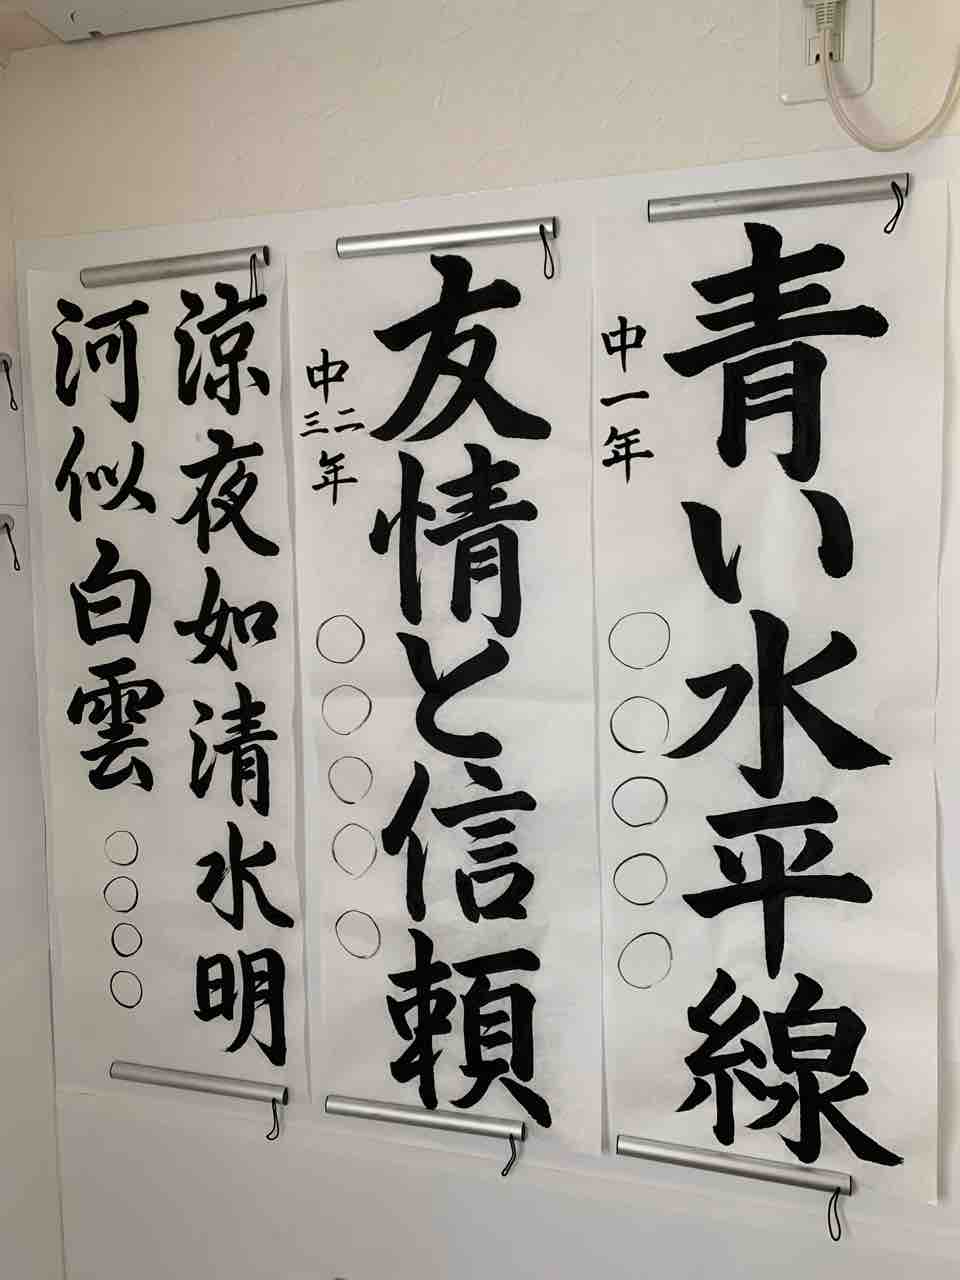 青い水平線
中一年
〇〇〇〇〇
友情と信頼
中二三年
〇〇〇〇〇
涼夜如清水明
河似白雲
〇〇〇〇